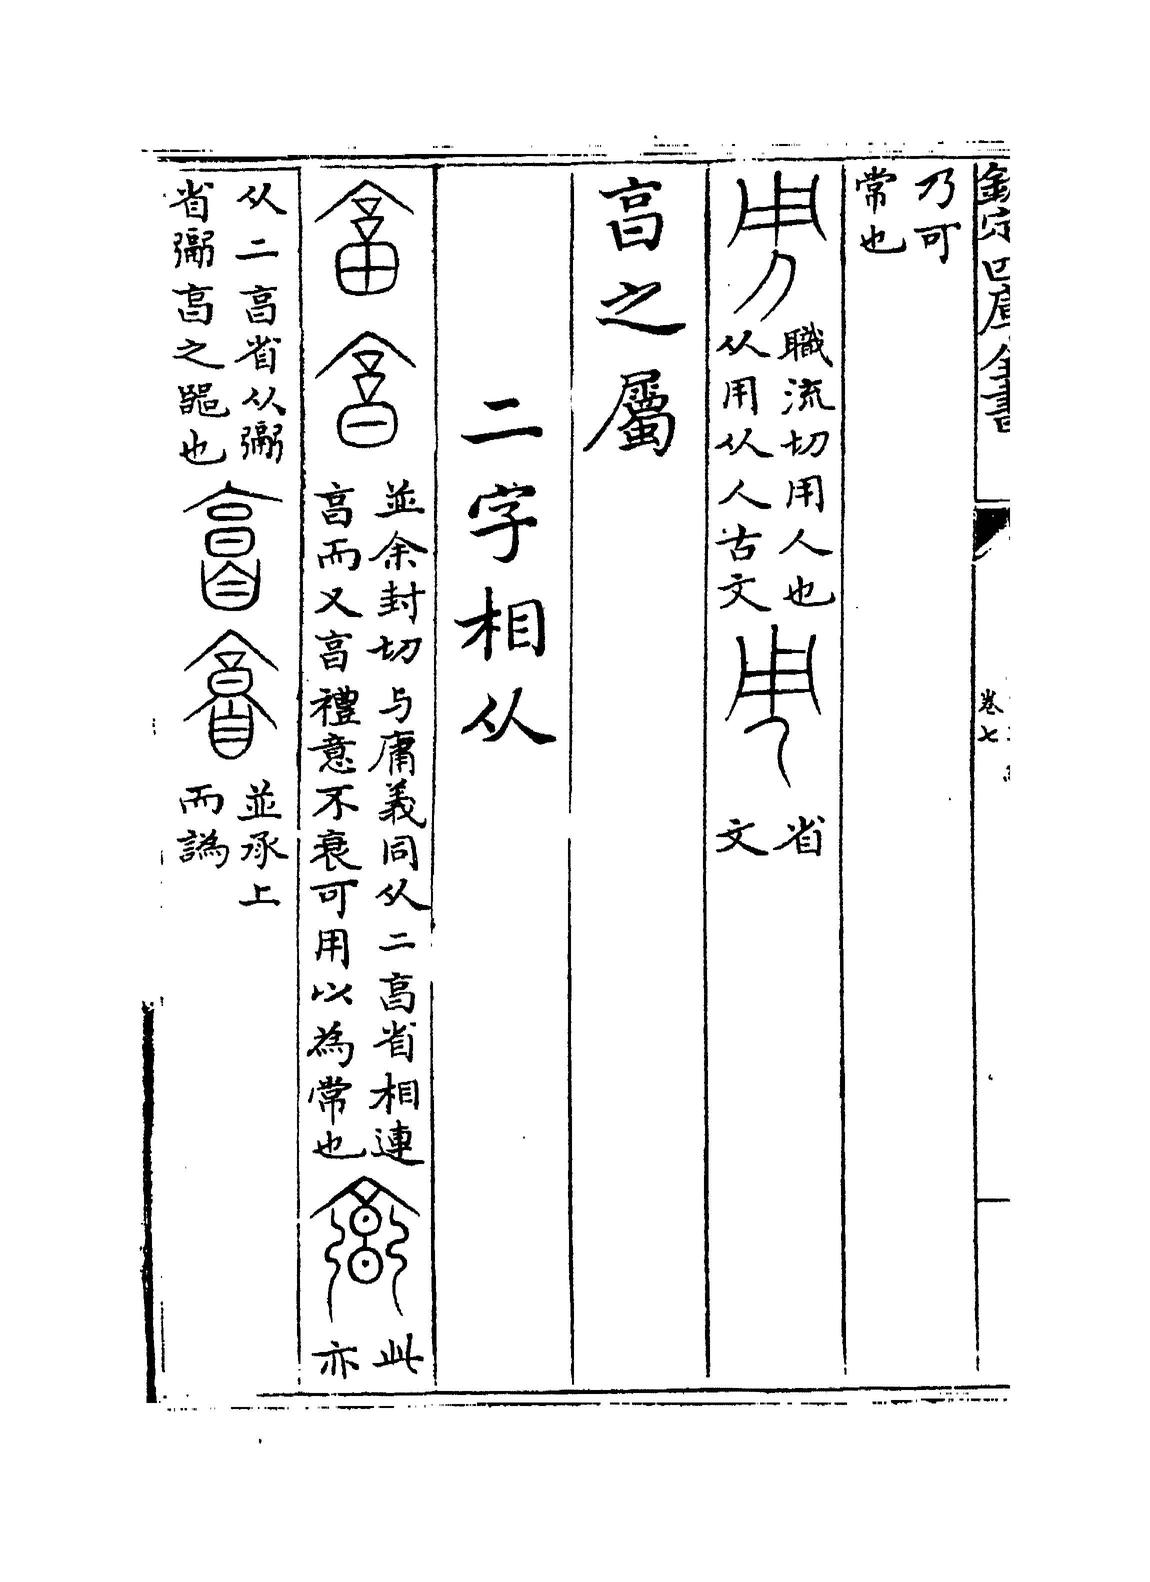 欽定四庫全書
卷七
乃可
常也
職流切用人也
从用从人古文
省
文
亯之屬
二字相从
並余封切与庸義同从二亯省相連
亯而又亯禮意不衰可用以為常也
此
亦
从二亯省从䰜
省䰜亯之器也
並承上
而譌